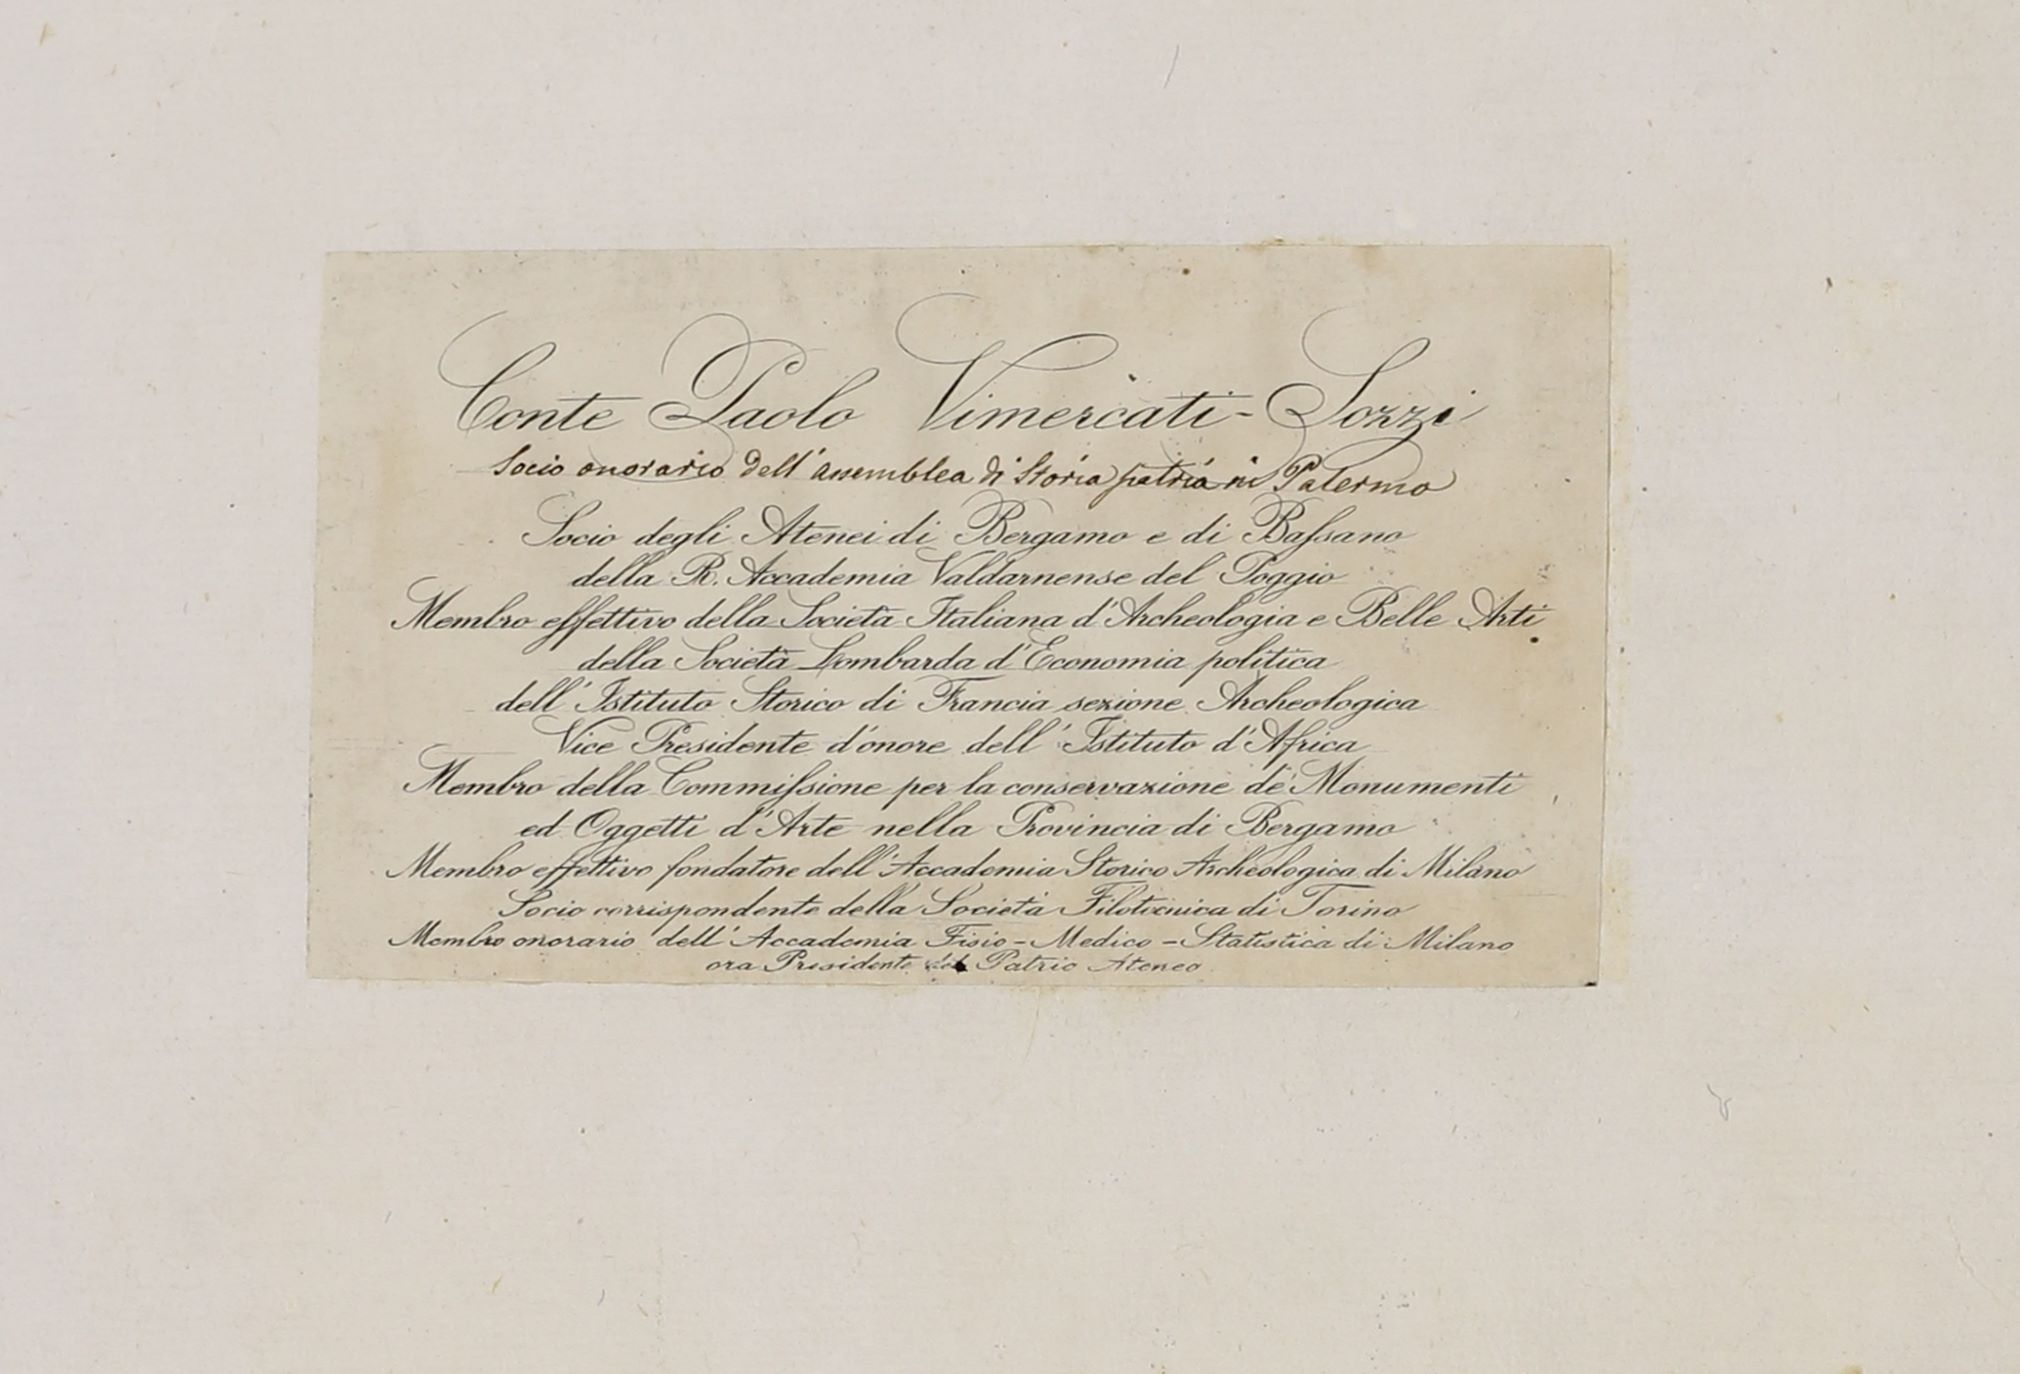 Conte Paolo Vimercati-Sozzi
Socio onorario dell'assemblea di Storia patria in Palermo
Socio degli Atenei di Bergamo e di Baſsano
della R. Accademia Valdarnense del Poggio
Membro effettivo della Società Italiana d'Archeologia e Belle Arti
della Società Lombarda d'Economia politica
dell'Istituto Storico di Francia sezione Archeologica
Vice Presidente d'onore dell'Istituto d'Africa
Membro della Commiſsione per la conservazione de' Monumenti
ed Oggetti d'Arte nella Provincia di Bergamo
Membro effettivo fondatore dell'Accademia Storico Archeologica di Milano
Socio corrispondente della Società Filotecnica di Torino
Membro onorario dell'Accademia Fisio-Medico-Statistica di Milano
ora Presidente del Patrio Ateneo